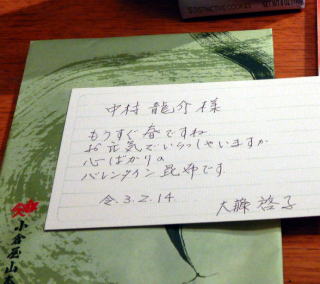 DISTINCTIVE COOKIES
NET WT 8 OZ
中村 龍介 様
もうすぐ春ですね
お元気でいらっしゃいますか
心ばかりの
バレンタイン昆布です
令.3.2.14
大藤 啓子
小倉屋山本